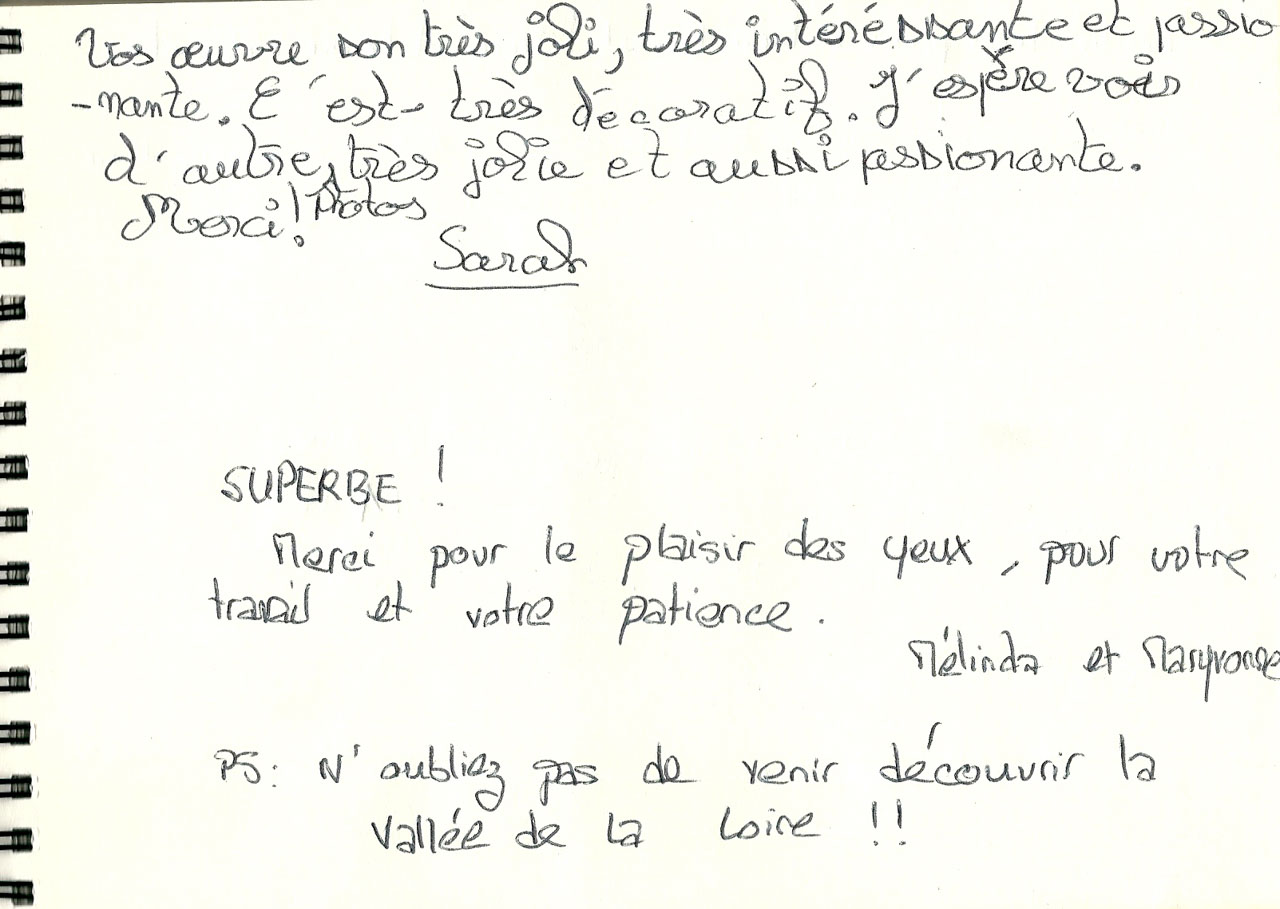 Vos œuvre son très joli, très intéréssante et passio
-nante. C'est très décoratif. J'espère voir
d'autre, très jolie et aussi passionante.
Merci! Photos
Sarah
SUPERBE !
Merci pour le plaisir des yeux, pour votre
travail et votre patience.
Mélinda et Maryvonne
PS: N'oubliez pas de venir découvrir la
vallée de la Loire !!